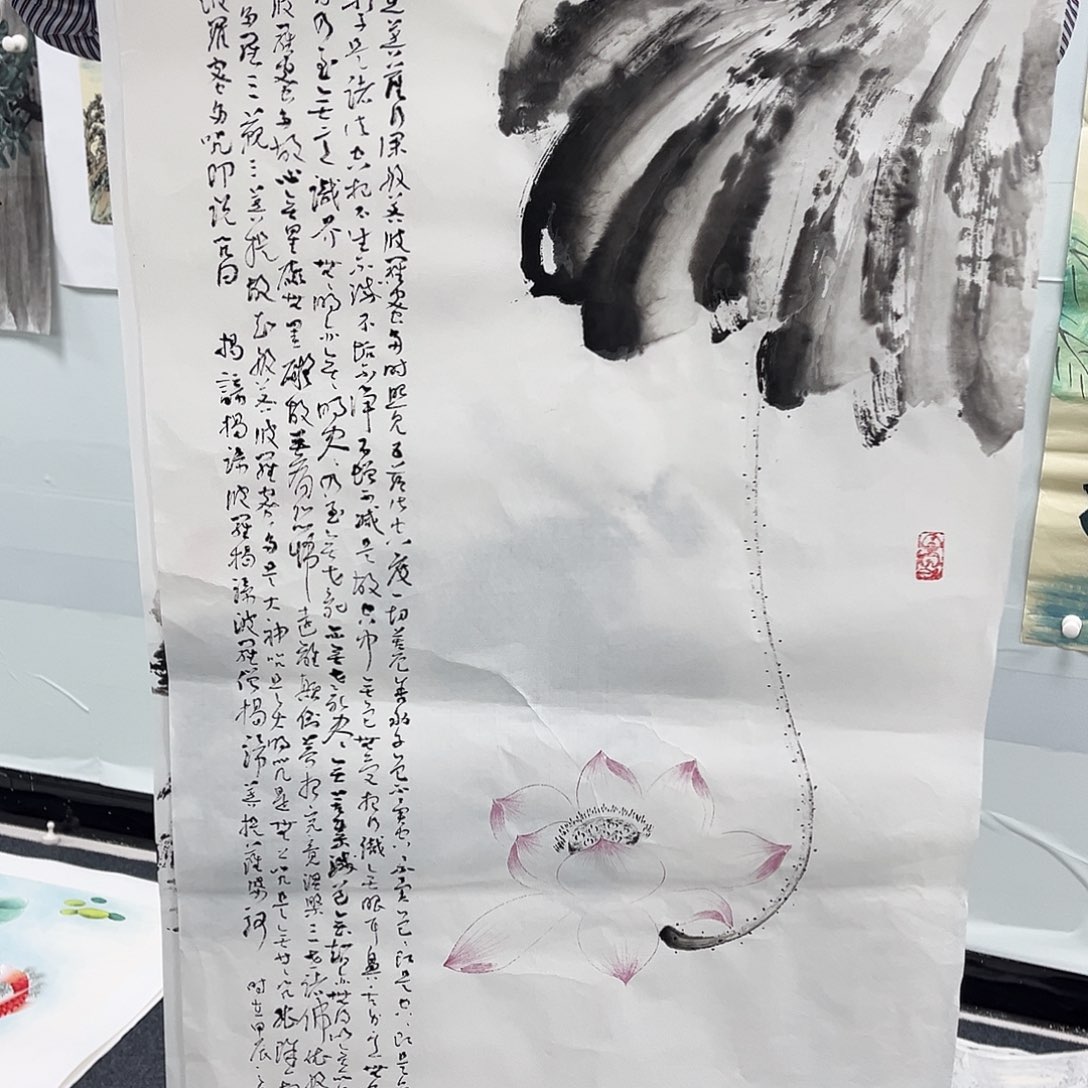 菩薩行深般若波羅蜜多時照見五蘊皆空度一切苦厄舍利子色不異空空不異色色即是空空即是
子是諸法空相不生不滅不垢不淨不增不減是故空中無色無受想行識無眼耳鼻舌身意無
乃至無意識界無無明亦無無明盡乃至無老死亦無老死盡無苦集滅道無智亦無得以無所
般羅蜜多故心無罣礙無罣礙故無有恐怖遠離顛倒夢想究竟涅槃三世諸佛依般
多羅三藐三菩提故知般若波羅蜜多是大神咒是大明咒是無上咒是無等等咒能除一切
波羅蜜多咒即說咒曰 揭諦揭諦波羅揭諦波羅僧揭諦菩提薩婆訶 時在甲辰